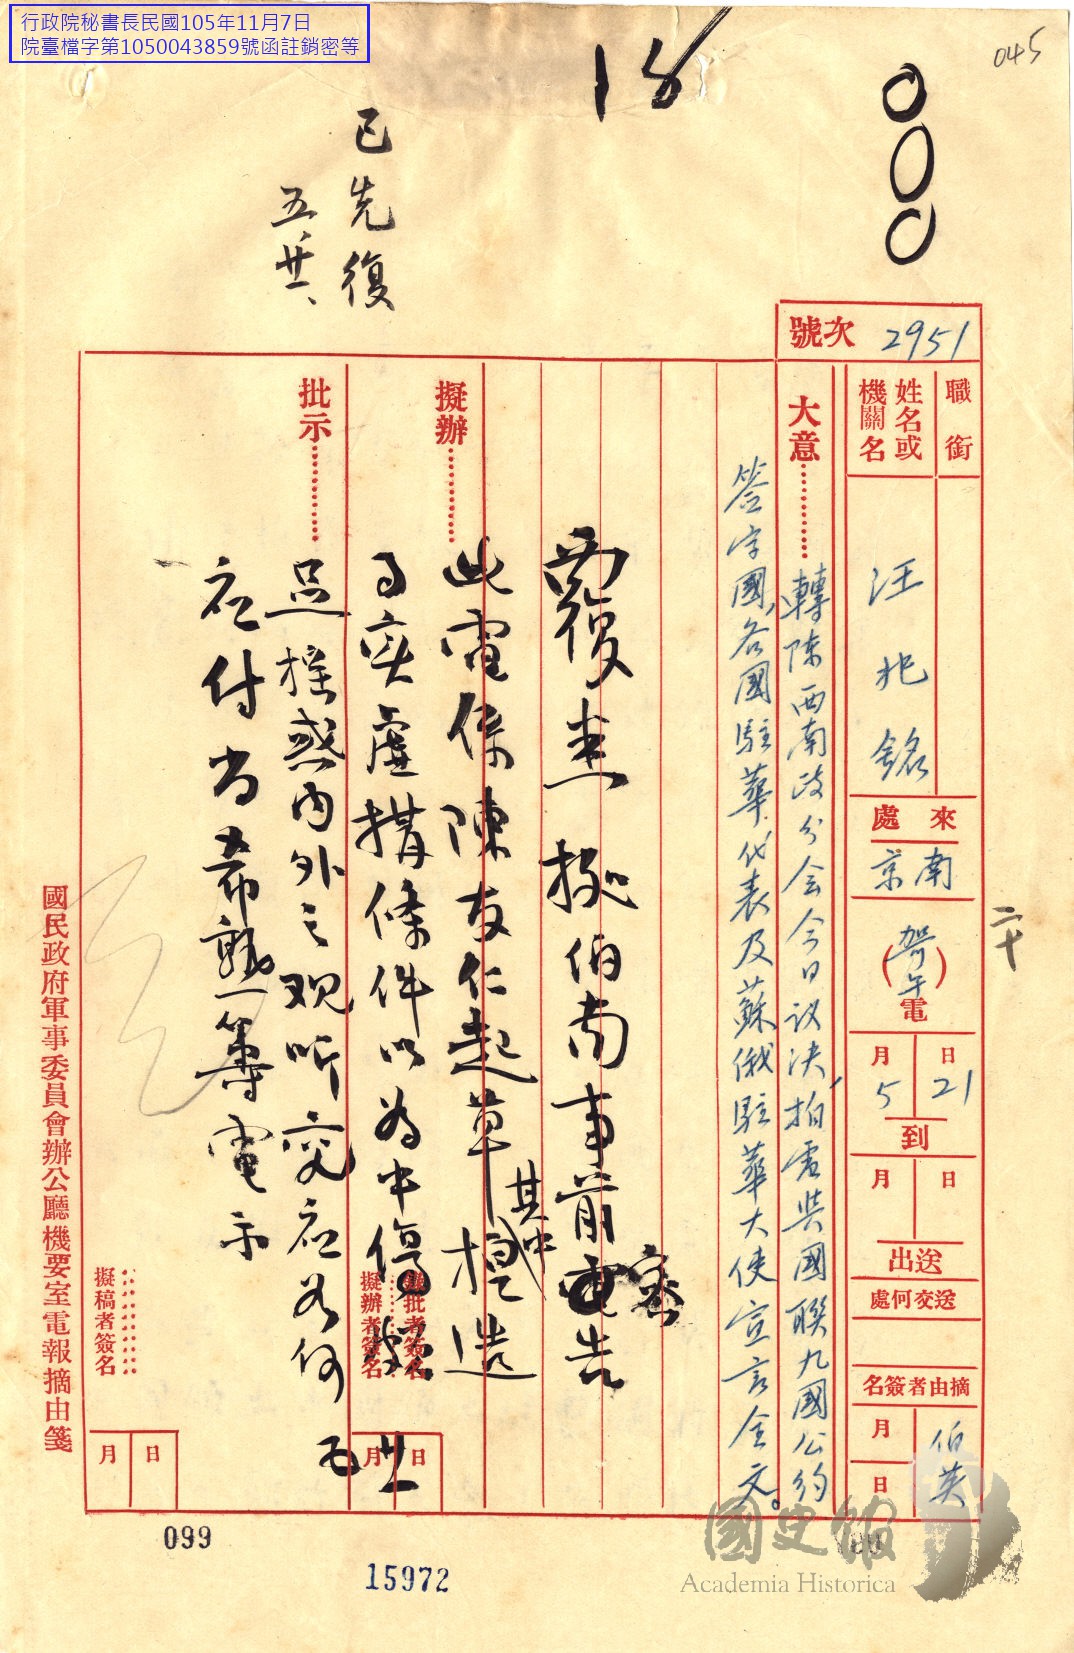 行政院秘書長民國105年11月7日
院臺檔字第1050043859號函註銷密等
045
18
已先復
五廿
號次 2951
職銜
姓名或機關名
汪兆銘
來處
南京
(午)電
5月21日
到
月 日
送出
送交何處
摘由者簽名
伯英
月 日
二十
大意
轉陳西南政分会今日议决,拍電英國聯九國公约
签字國,各國駐華代表及蘇俄駐華大使宣言全文。
覆 伯南事前電告
擬辦
此電係陳友仁起草其中捏造
事实虚構條件以為中傷
批示
且搖惑内外之观听究应如何
应付尚希 籌電示
擬批者簽名
擬辦者簽名
月 日
擬稿者簽名
月 日
已先復
國民政府軍事委員會辦公廳機要室電報摘由箋
099
15972
國史館
Academia Historica